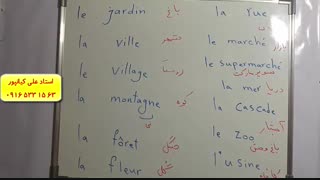 le jardin باغ
la ville شهر
le village روستا
la montagne کوه
la fôret جنگل
la fleur گل
la rue
le marché بازار
le supermarché سوپر مارکت
la mer دریا
la cascade آبشار
le zoo باغ وحش
l'usine
استاد علی کیانپور
۰۹۱۶۵۳۳۱۵۶۳